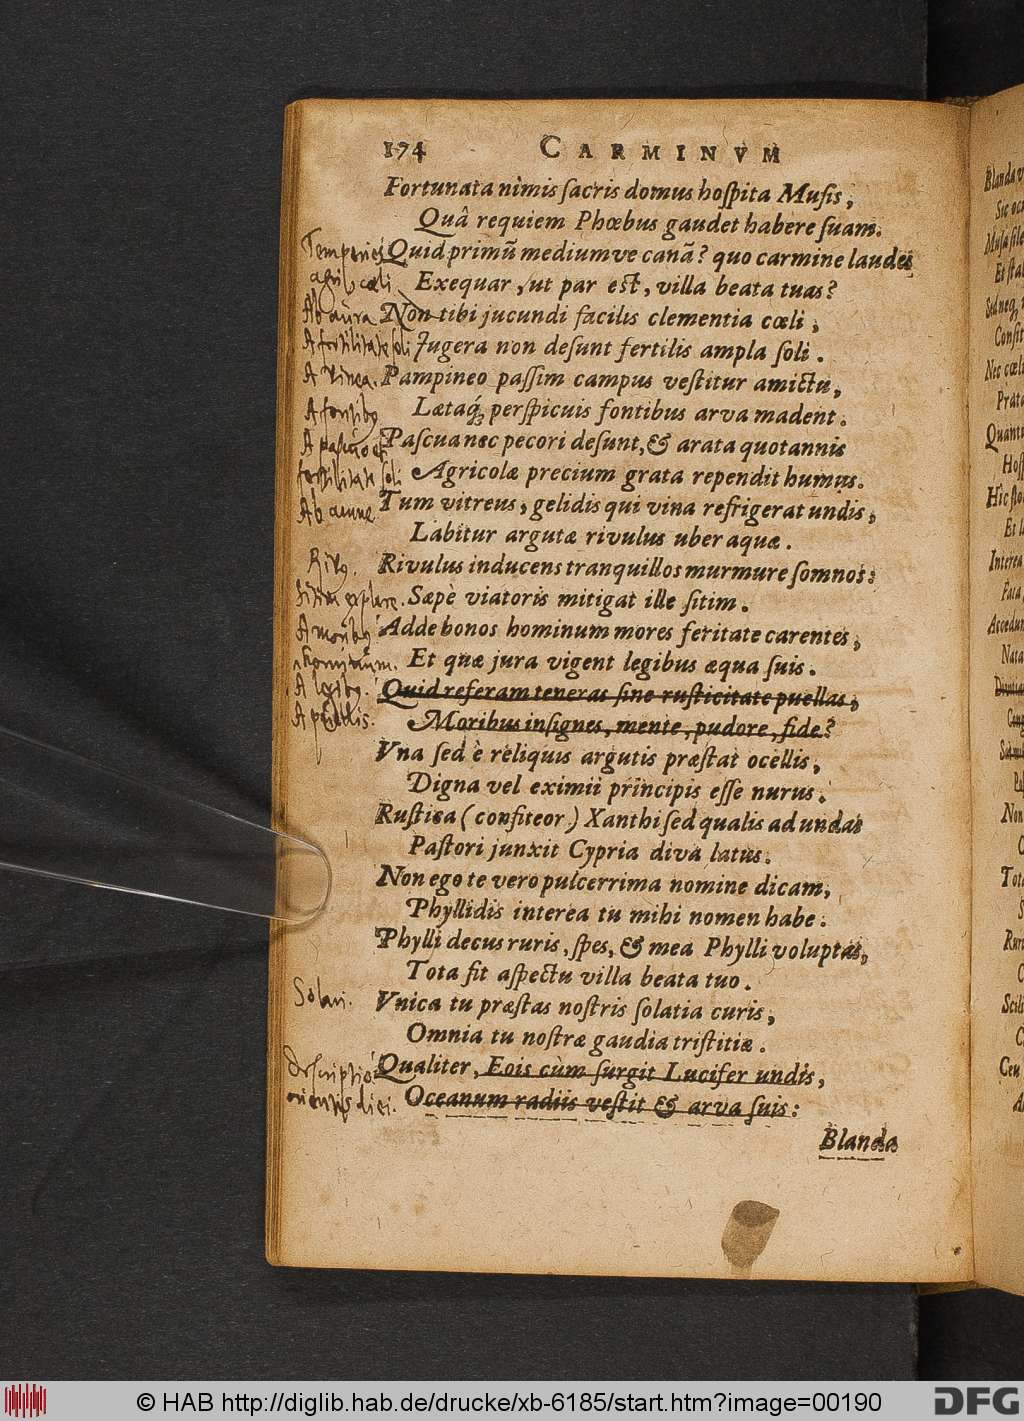 174 CARMINVM
Fortunata nimis sacris domus hospita Musis,
Quâ requiem Phœbus gaudet habere suam.
Quid primũ mediumve canã? quo carmine laudes
Exequar, ut par est, villa beata tuas?
Nòn tibi jucundi facilis clementia cœli,
Jugera non desunt fertilis ampla soli.
Pampineo passim campus vestitur amictu,
Lætaq́; perspicuis fontibus arva madent.
Pascua nec pecori desunt, & arata quotannis
Agricolæ precium grata rependit humus.
Tum vitreus, gelidis qui vina refrigerat undis,
Labitur argutæ rivulus uber aquæ.
Rivulus inducens tranquillos murmure somnos:
Sæpè viatoris mitigat ille sitim.
Adde bonos hominum mores feritate carentes,
Et quæ jura vigent legibus æqua suis.
Quid referam teneras sine rusticitate puellas,
Moribus insignes, mente, pudore, fide?
Vna sed è reliquis argutis præstat ocellis,
Digna vel eximii principis esse nurus.
Rustica (confiteor) Xanthi sed qualis ad undas
Pastori junxit Cypria diva latus.
Non ego te vero pulcerrima nomine dicam,
Phyllidis interea tu mihi nomen habe.
Phylli decus ruris, spes, & mea Phylli voluptas,
Tota fit aspectu villa beata tuo.
Vnica tu præstas nostris solatia curis,
Omnia tu nostræ gaudia tristitiæ.
Qualiter, Eois cùm surgit Lucifer undis,
Oceanum radiis vestit & arva suis:
Blanda
Temperies
cœli
Ab aura
A fertilitate soli
A vinea.
A fontibq
A pascuo et
fertilitate soli
Ab amne
Rivq.
sitim explere.
A moribq
hominum.
A legibq.
A puellis.
Solari.
Descriptio
orientis diei.
© HAB http://diglib.hab.de/drucke/xb-6185/start.htm?image=00190
DFG